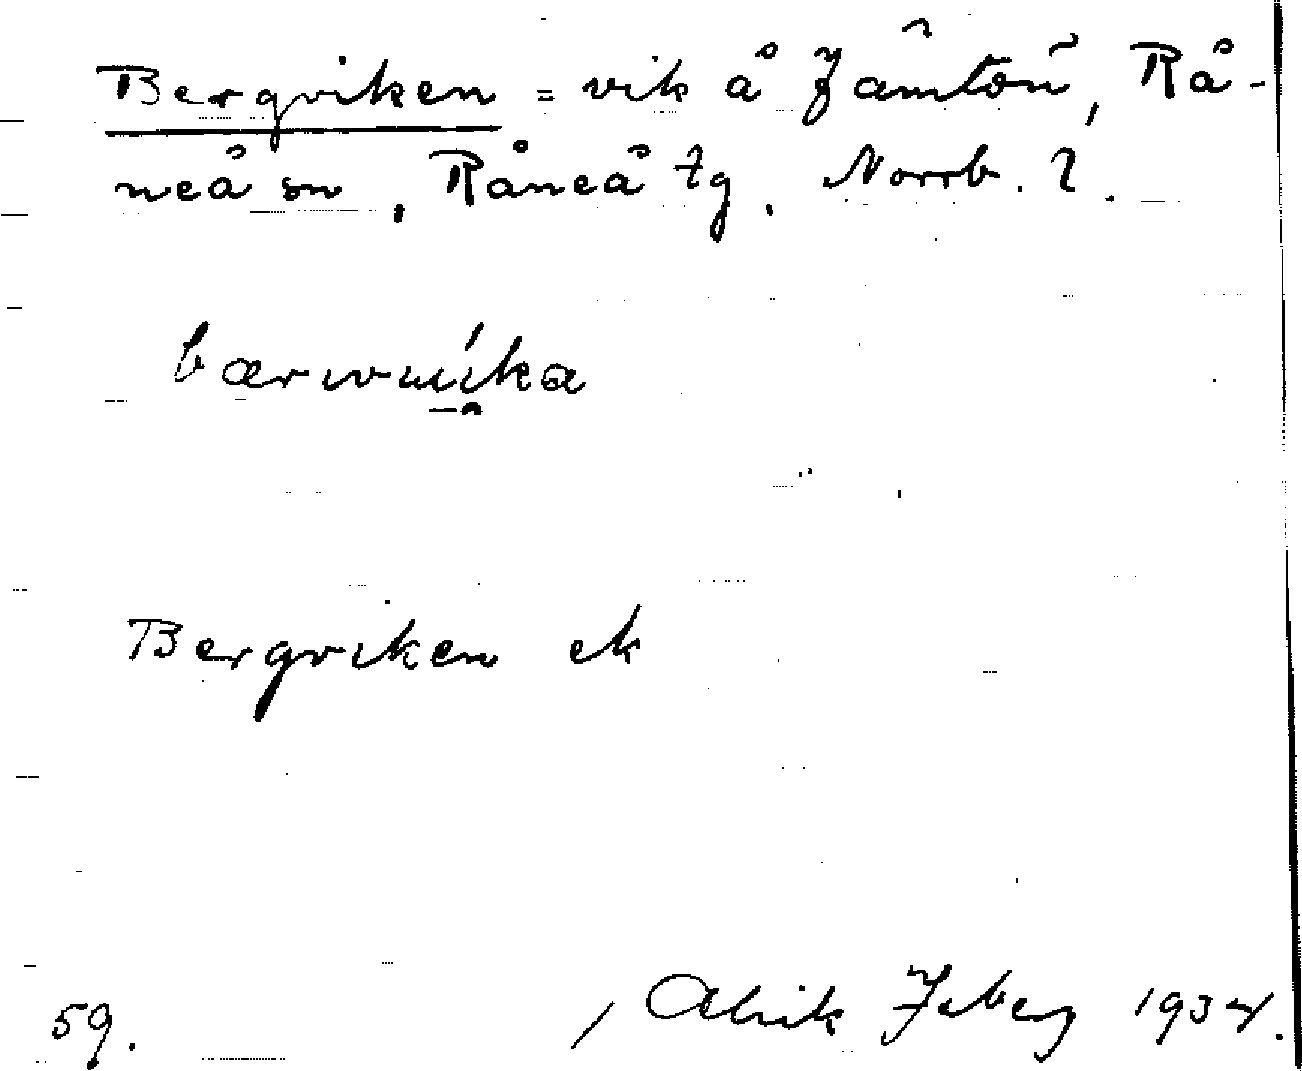 Bergviken = vik å Jämtön, Rå-
neå sn, Råneå tg, Norrb. l.
bærwwika
Bergviken ek
59. / Alrik
1934.